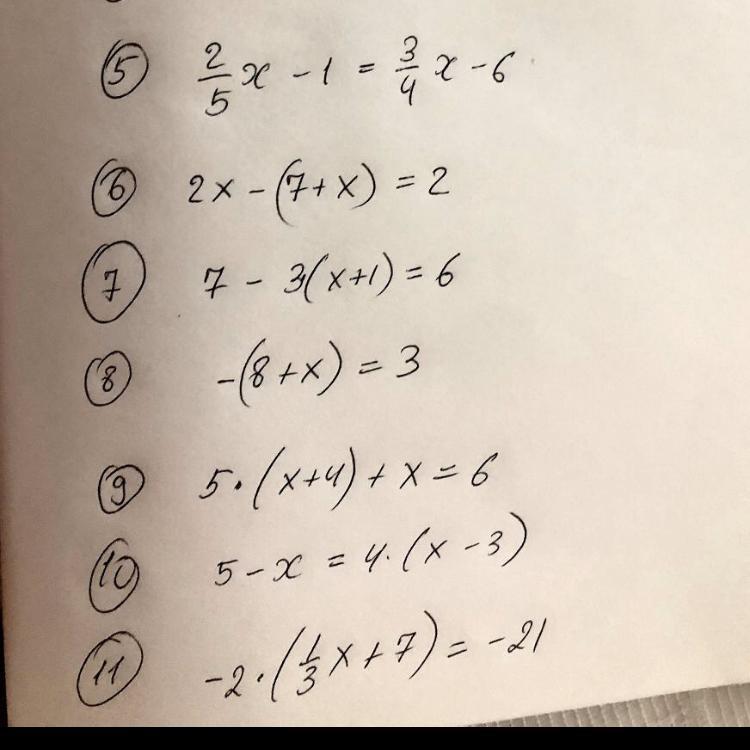 ⑤ 2/5 x - 1 = 3/4 x - 6
⑥ 2x - (7 + x) = 2
⑦ 7 - 3(x+1) = 6
⑧ -(8 + x) = 3
⑨ 5 · (x+4) + x = 6
⑩ 5 - x = 4 · (x - 3)
⑪ -2 · (1/3 x + 7) = -21